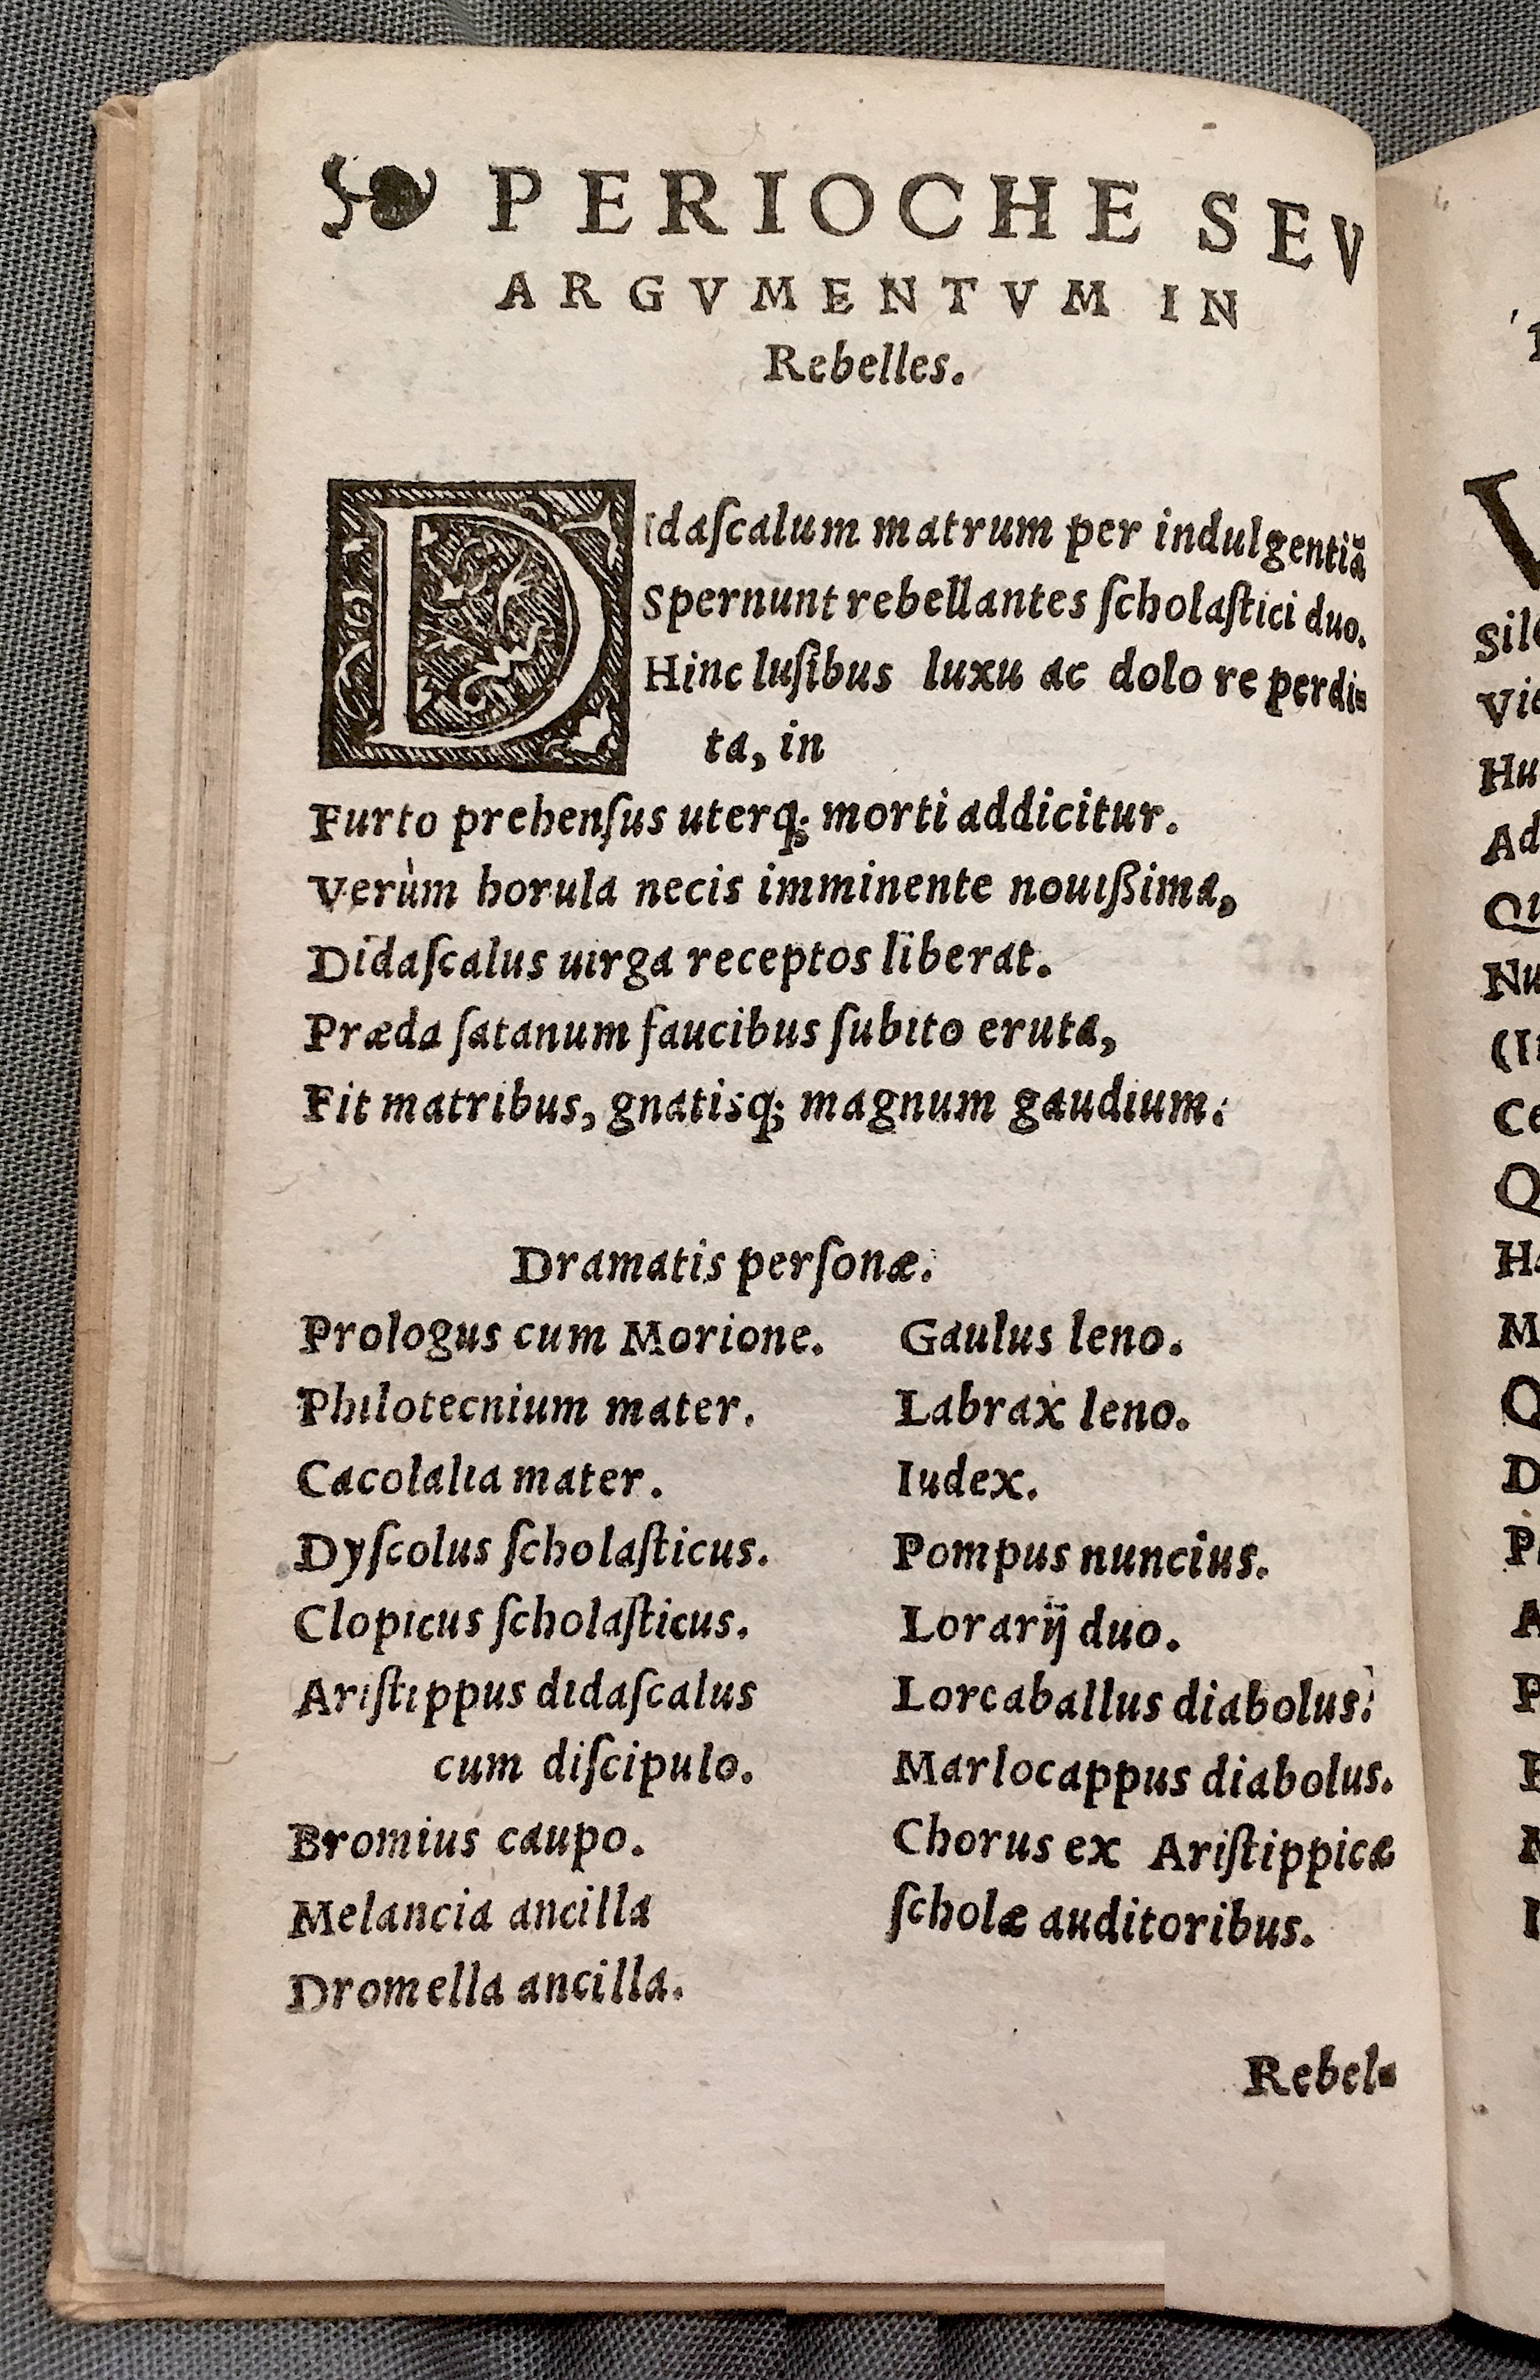 PERIOCHE SEV
ARGVMENTVM IN
Rebelles.
Didaſcalum matrum per indulgentiā
Spernunt rebellantes ſcholaſtici duo.
Hinc luſibus luxu ac dolo re perdi-
ta, in
Furto prehenſus uterq; morti addicitur.
Verùm horula necis imminente nouißima,
Didaſcalus uirga receptos liberat.
Præda ſatanum faucibus ſubito eruta,
Fit matribus, gnatisq; magnum gaudium.
Dramatis perſonæ.
Prologus cum Morione.
Philotecnium mater.
Cacolalia mater.
Dyſcolus ſcholaſticus.
Clopicus ſcholaſticus.
Ariſtippus didaſcalus
cum diſcipulo.
Bromius caupo.
Melancia ancilla
Dromella ancilla.
Gaulus leno.
Labrax leno.
Iudex.
Pompus nuncius.
Lorarij duo.
Lorcaballus diabolus.
Marlocappus diabolus.
Chorus ex Ariſtippicæ
ſcholæ auditoribus.
Rebel-